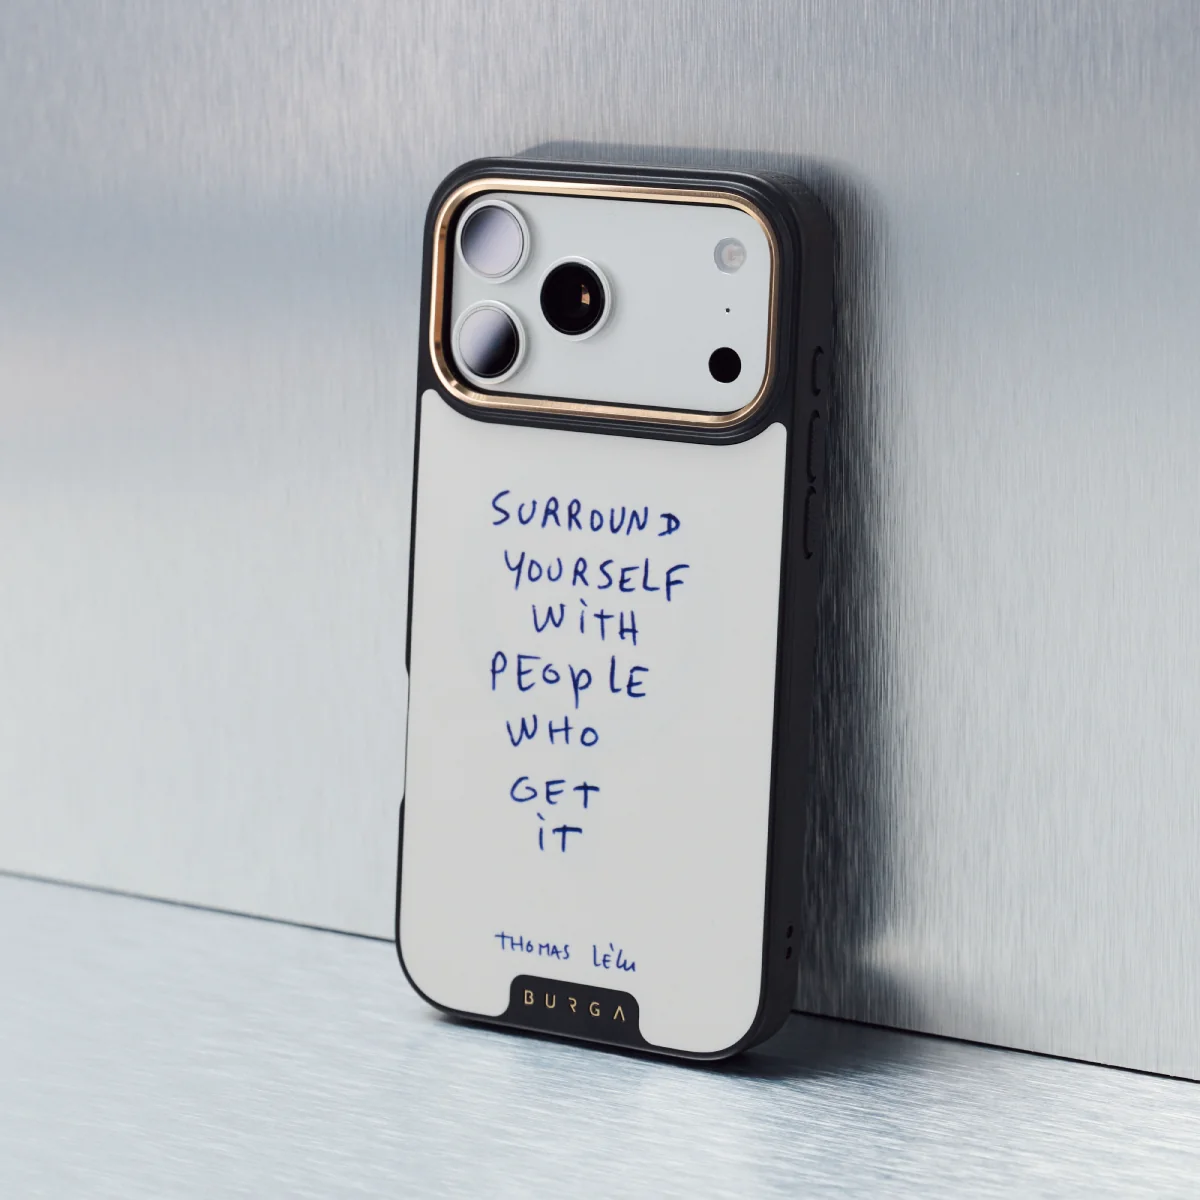 SURROUND
YOURSELF
WiTH
PEOplE
WHO
GET
iT
THOMAS LÈlu
BURGA